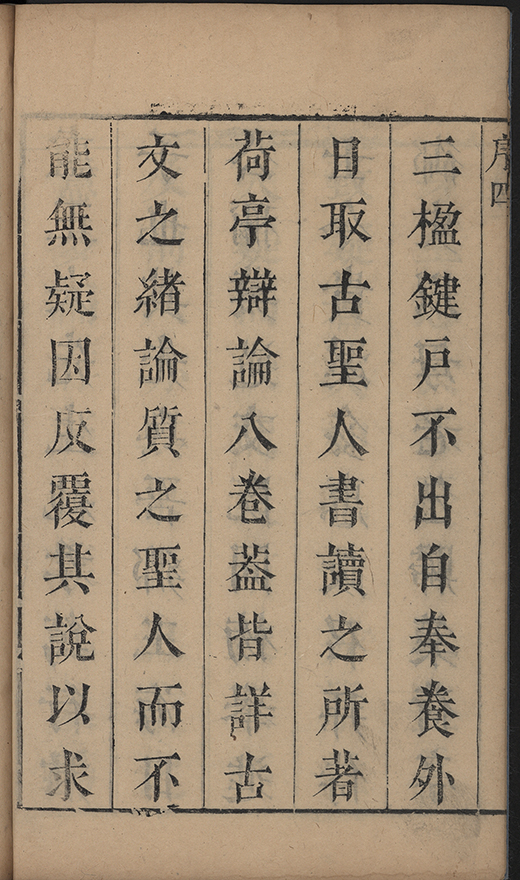 序四
三楹鍵戸不出自奉養外
日取古聖人書讀之所著
荷亭辯論八卷葢皆詳古
文之緒論質之聖人而不
能無疑因反覆其說以求